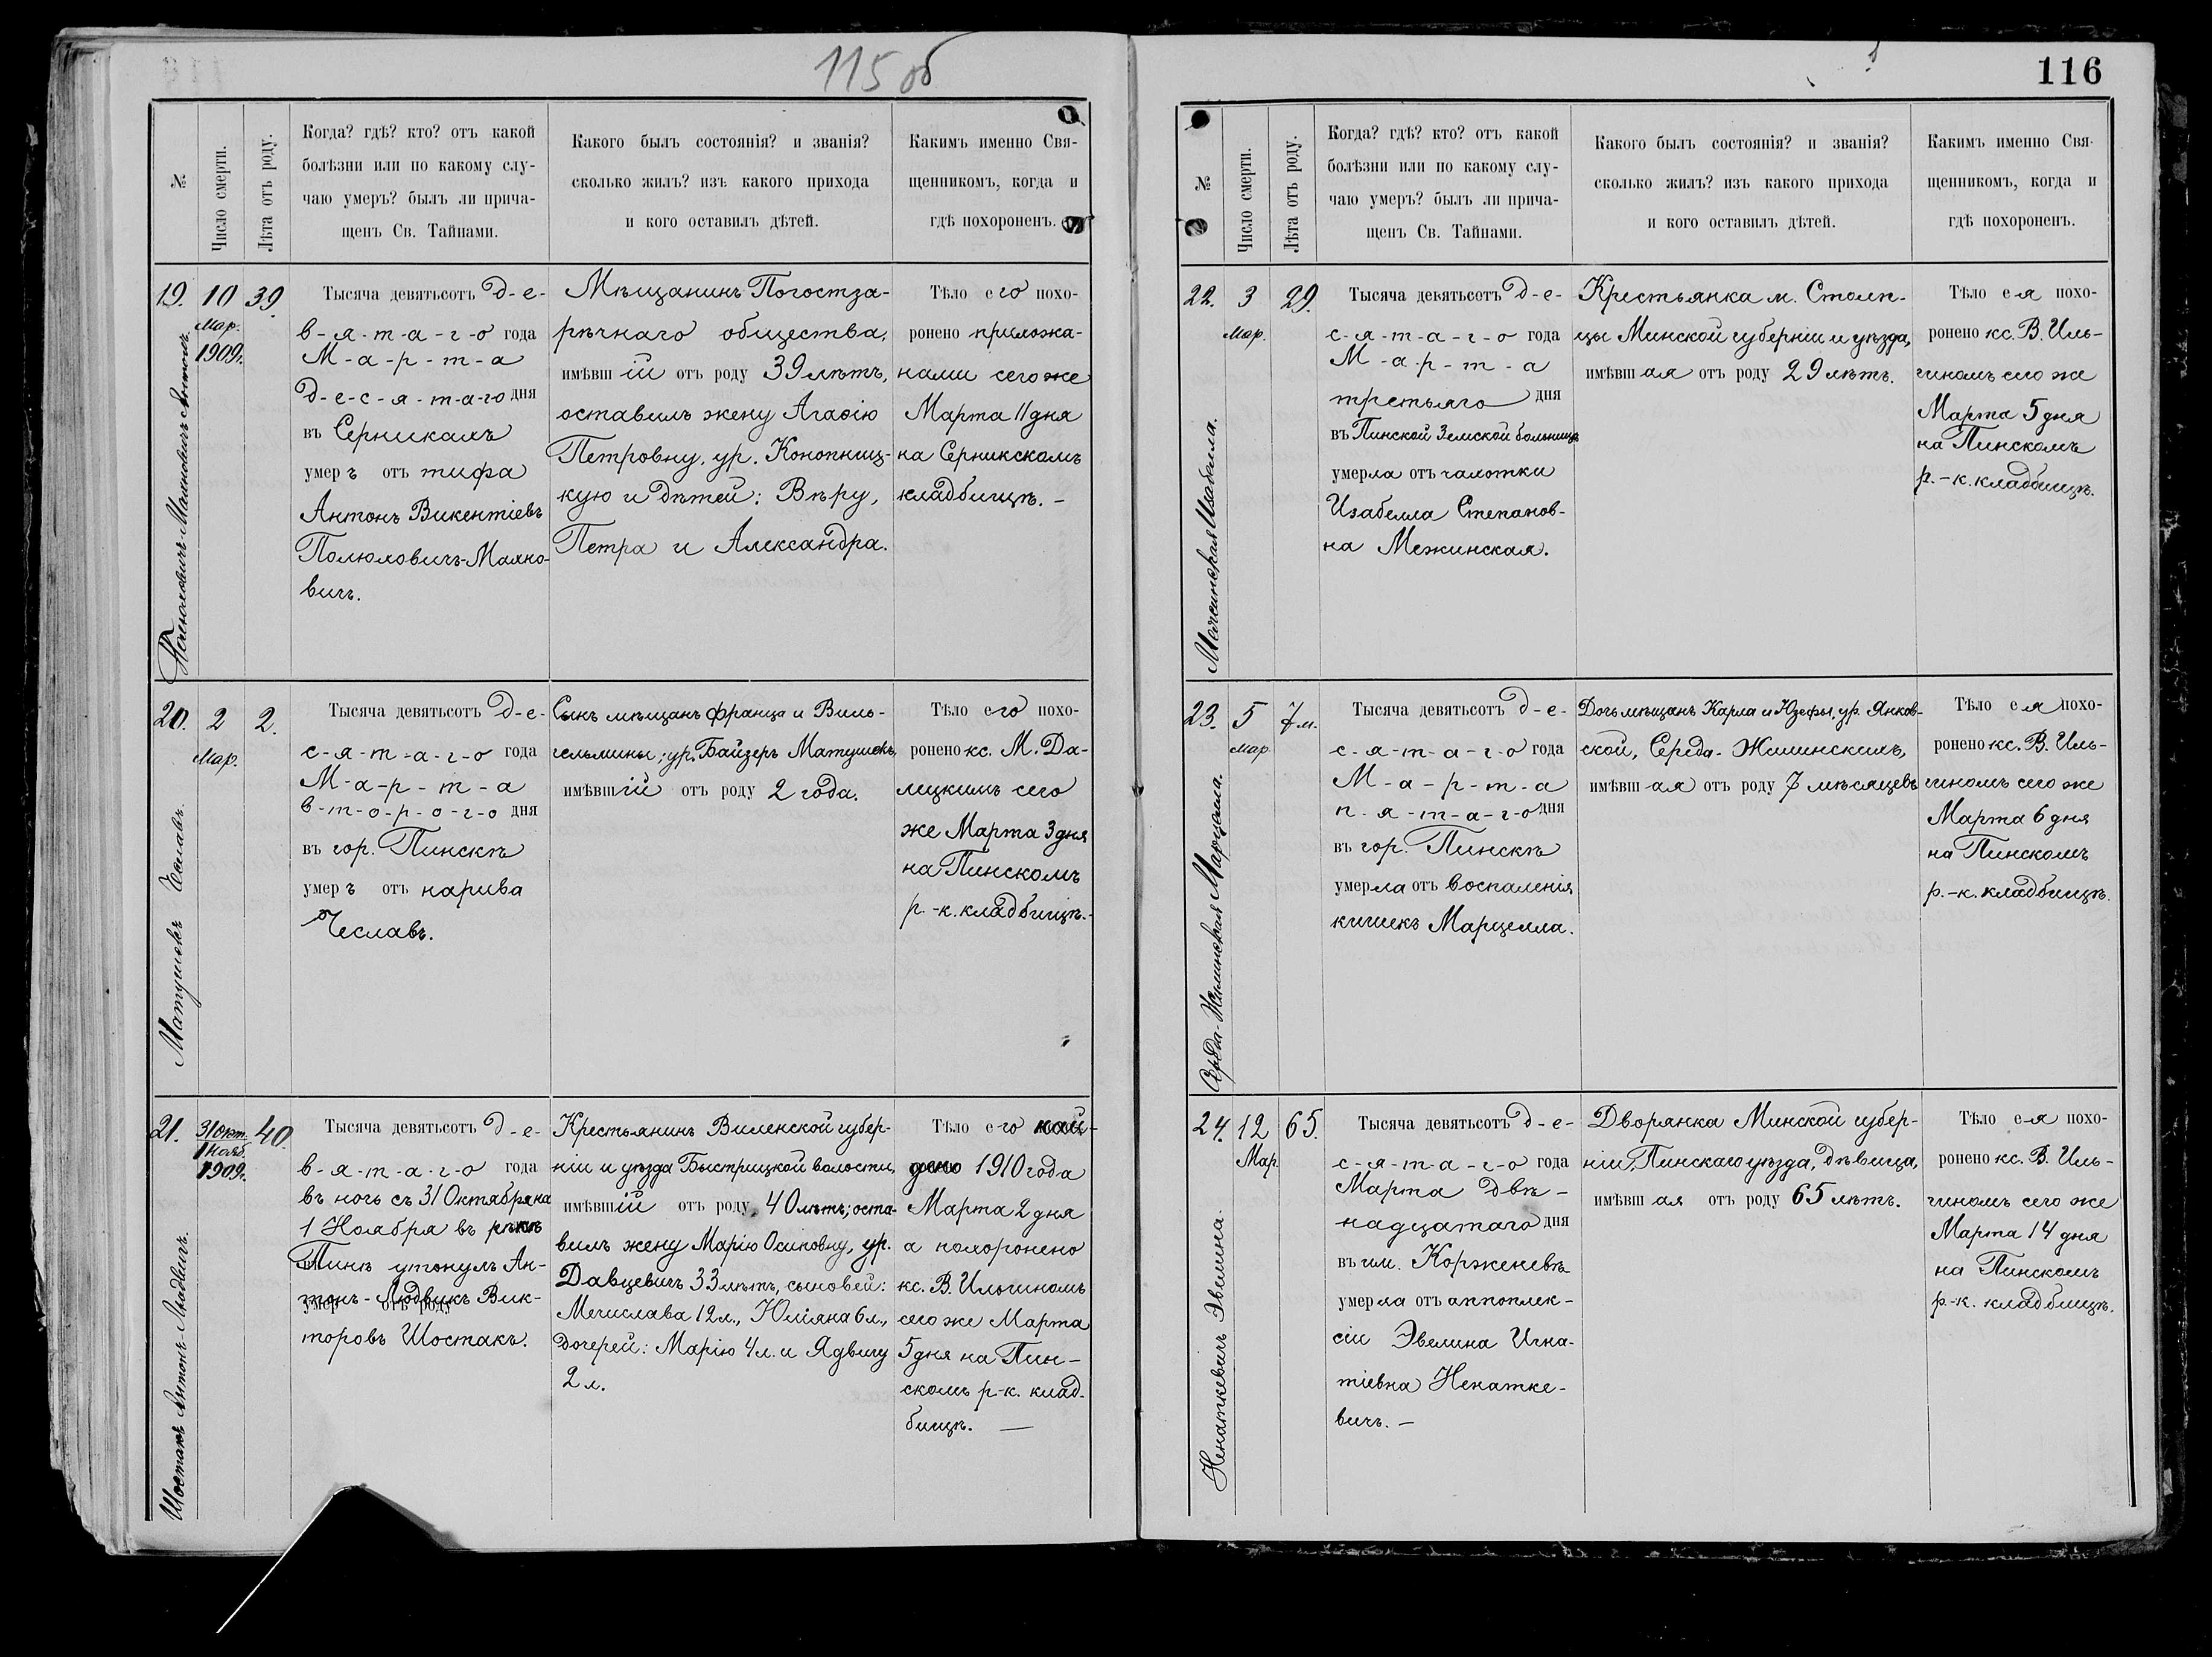 115 об
№.
Число смерти.
Лѣта отъ роду.
Когда? гдѣ? кто? отъ какой
болѣзни или по какому слу-
чаю умеръ? былъ ли прича-
щенъ Св. Тайнами.
Какого былъ состоянія? и званія?
сколько жилъ? изъ какого прихода
и кого оставилъ дѣтей.
Какимъ именно Свя-
щенникомъ, когда и
гдѣ похороненъ.
19.
Полюловичъ-Маяновичъ Антонъ.
10
Мар.
1909г.
39.
Тысяча девятьсотъ д-е-
в-я-т-а-г-о года
М-а-р-т-а
д-е-с-я-т-а-го дня
въ Серникахъ
умеръ отъ тифа
Антонъ Викентіевъ
Полюловичъ-Маяно-
вичъ.
Мѣщанинъ Погостза-
рѣчнаго общества,
имѣвшій отъ роду 39 лѣтъ,
оставилъ жену Агафію
Петровну, ур. Конопниц-
кую и дѣтей: Вѣру,
Петра и Александра.
Тѣло его похо-
ронено прихожа-
нами сего же
Марта 11 дня
на Серникскомъ
кладбищѣ. -
20.
Матушекъ Чеславъ.
2
Мар.
2.
Тысяча девятьсотъ д-е-
с-я-т-а-г-о года
М-а-р-т-а
в-т-о-р-о-г-о дня
въ гор. Пинскѣ
умеръ отъ нарива
Чеславъ.
Сынъ мѣщанъ Франца и Виль-
гельмины, ур. Байзеръ Матушекъ,
имѣвшій отъ роду 2 года.
Тѣло его похо-
ронено кс. М. Да-
лецкимъ сего
же Марта 3 дня
на Пинскомъ
р.-к. кладбищѣ.-
21.
Шостакъ Антонъ-Людвигъ.
31 окт.
1 нояб.
1909г.
40.
Тысяча девятьсотъ д-е-
в-я-т-а-г-о года
въ ночь съ 31 Октября на
1 Ноября въ рѣкѣ
Пинѣ утонулъ Ан-
тонъ-Людвикъ Вик-
умер отъ роду
торовъ Шостакъ.
Крестьянинъ Виленской губер-
ніи и уѣзда Быстрицкой волости,
имѣвшій отъ роду 40 лѣтъ; оста-
вилъ жену Марію Осиповну, ур.
Давцевичъ 33 лѣтъ, сыновей:
Мечислава 12 л., Юліяна 6 л.,
дочерей: Марію 4 л. и Ядвигу
2 л.
Тѣло его най-
дено 1910 года
Марта 2 дня
а похоронено
кс. В. Ильгиномъ
сего же Марта
5 дня на Пин-
скомъ р-к. клад-
бищѣ. —
116
№
Число смерти.
Лѣта отъ роду.
Когда? гдѣ? кто? отъ какой
болѣзни или по какому слу-
чаю умеръ? былъ ли прича-
щенъ Св. Тайнами.
Какого былъ состоянія? и званія?
сколько жилъ? изъ какого прихода
и кого оставилъ дѣтей.
Какимъ именно Свя-
щенникомъ, когда и
гдѣ похороненъ.
22.
Межинская Изабелла.
3
Мар.
29.
Тысяча девятьсотъ д-е-
с-я-т-а-г-о года
М-а-р-т-а
третьяго дня
въ Пинской Земской больницѣ
умерла отъ чахотки
Изабелла Степанов-
на Межинская.
Крестьянка м. Столп-
цы Минской губерніи и уѣзда,
имѣвшая отъ роду 29 лѣтъ.
Тѣло ея похо-
ронено кс. В. Иль-
гиномъ сего же
Марта 5 дня
на Пинскомъ
р.-к. кладбищѣ.
23.
Середа-Жилинская Марцелла.
5
Мар
7 м.
Тысяча девятьсотъ д-е-
с-я-т-а-г-о года
М-а-р-т-а
п-я-т-а-г-о дня
въ гор. Пинскѣ
умерла отъ воспаленія
кишекъ Марцелла.
Дочь мѣщанъ Карла и Юзефы, ур. Янков-
ской, Середа-Жилинскихъ,
имѣвшая отъ роду 7 мѣсяцевъ
Тѣло ея похо-
ронено кс. В. Иль-
гиномъ сего же
Марта 6 дня
на Пинскомъ
р.-к. кладбищѣ.
24.
Ненаткевичъ Эвелина.
12
Мар
65.
Тысяча девятьсотъ д-е-
с-я-т-а-г-о года
Марта двѣ-
надцатаго дня
въ им. Корженевѣ
умерла отъ апоплек-
сіи Эвелина Игна-
тіевна Ненатке-
вичъ. -
Дворянка Минской губер-
ніи, Пинскаго уѣзда, дѣвица,
имѣвшая отъ роду 65 лѣтъ.
Тѣло ея похо-
ронено кс. В. Иль-
гиномъ сего же
Марта 14 дня
на Пинскомъ
р-к. кладбищѣ.